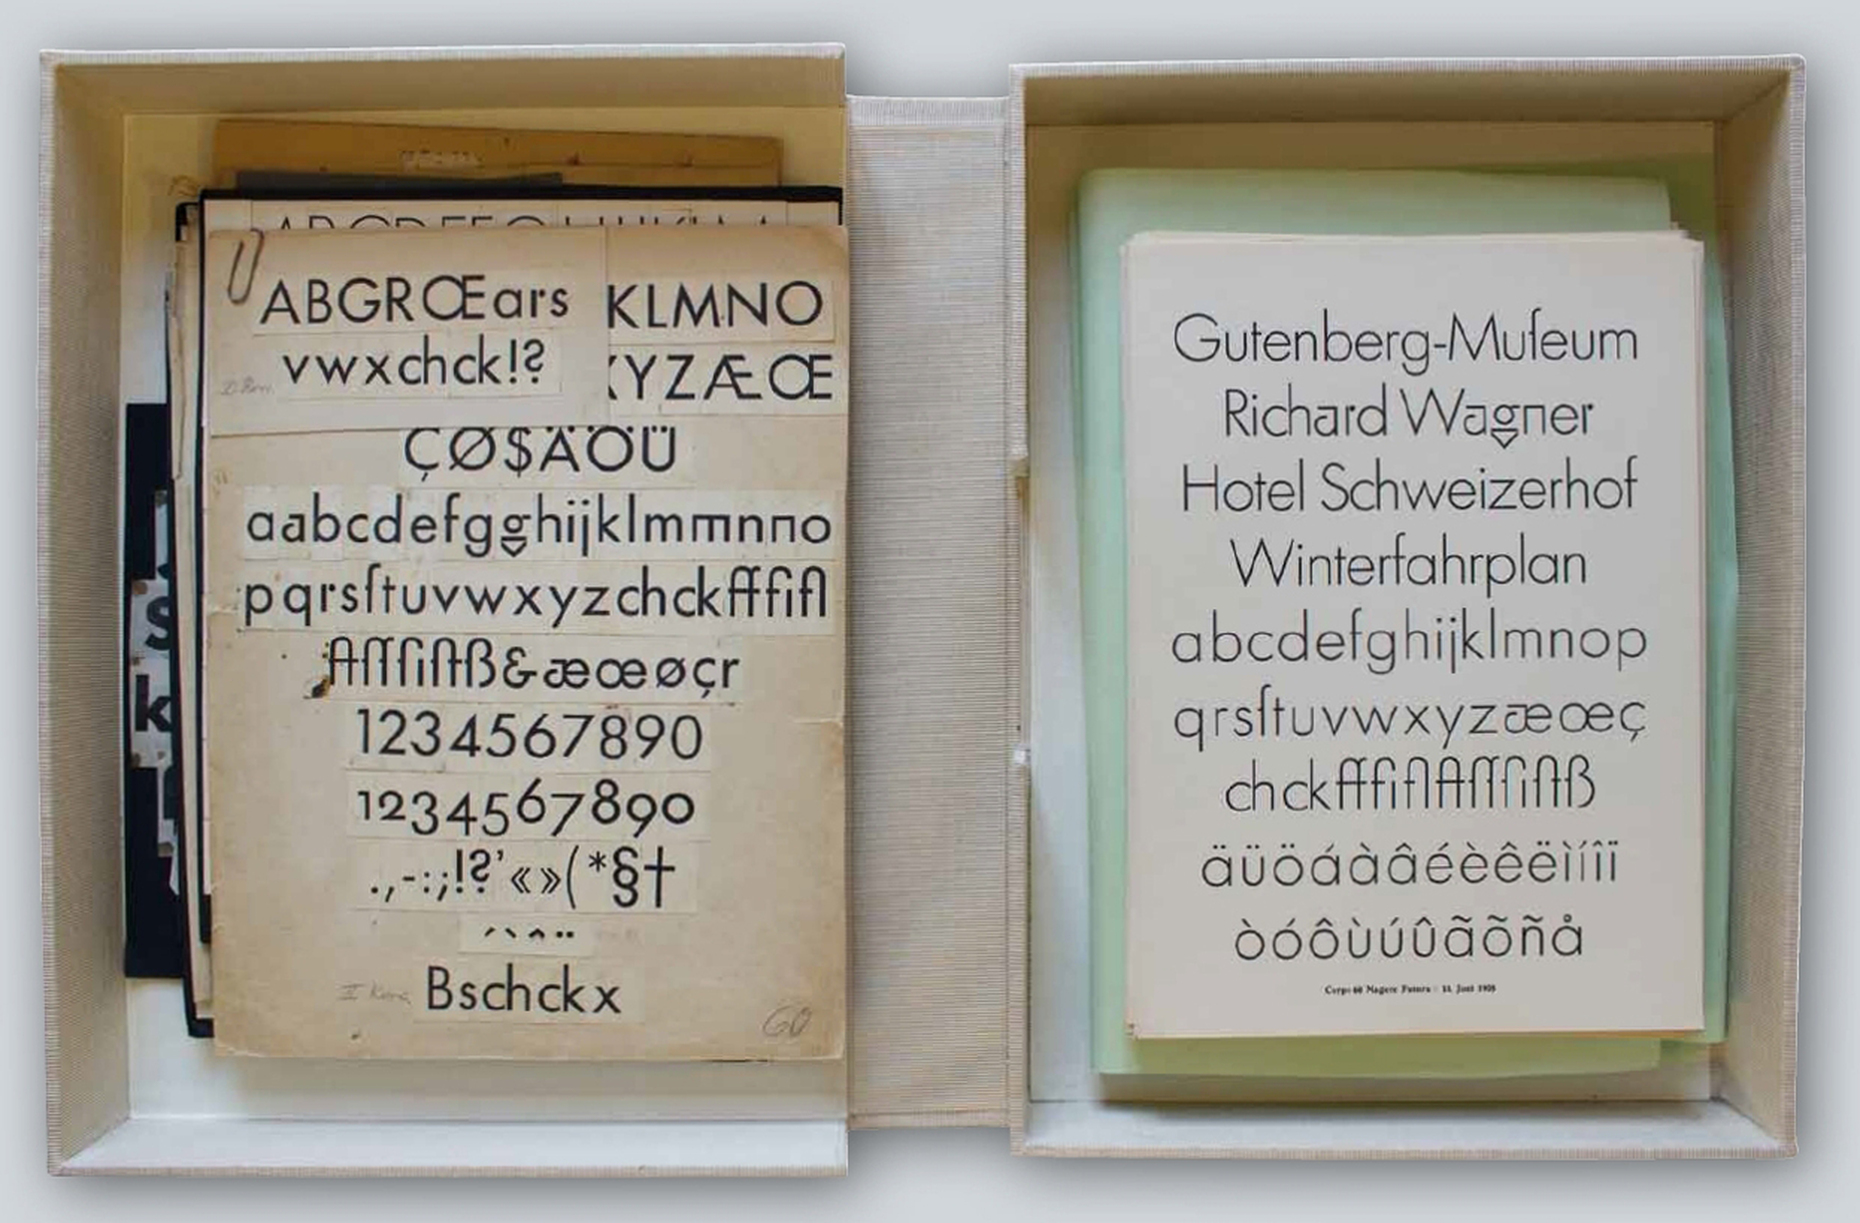 ABGRŒars
KLMNO
vwxchck!?
YZÆŒ
ÇØ$ÄÖÜ
aabcdefggghijklmmnno
pqrsſtuvwxyzchckfffifl
ftſſſiſtß&æœøçr
1234567890
1234567890
.,-:;!?’«»(*§†
´`^¨
II
Bschckx
60
s
k
Gutenberg-Muſeum
Richard Wagner
Hotel Schweizerhof
Winterfahrplan
abcdefghijklmnop
qrsſtuvwxyzæœç
chckfffiflftſſſiſtß
äüöáàâéèêëìíîï
òóôùúûãõñå
Corps 60 Magere Futura